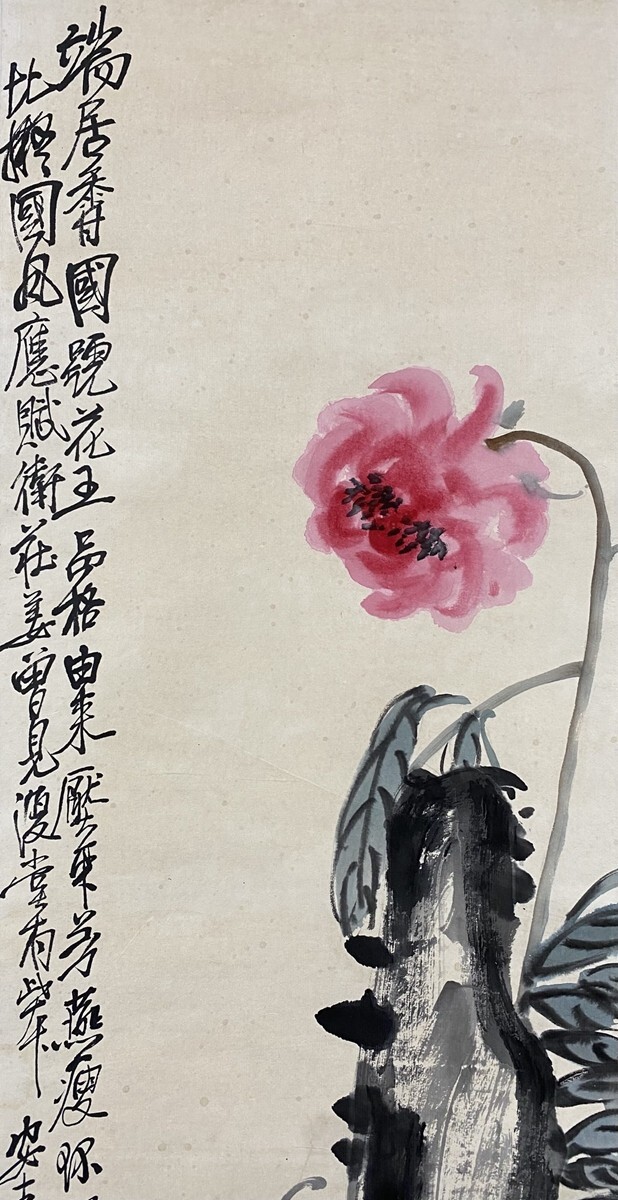 端居香國號花王品格由來壓眾芳燕瘦環
比擬國風應賦衛莊姜曾見復堂有此本安吉